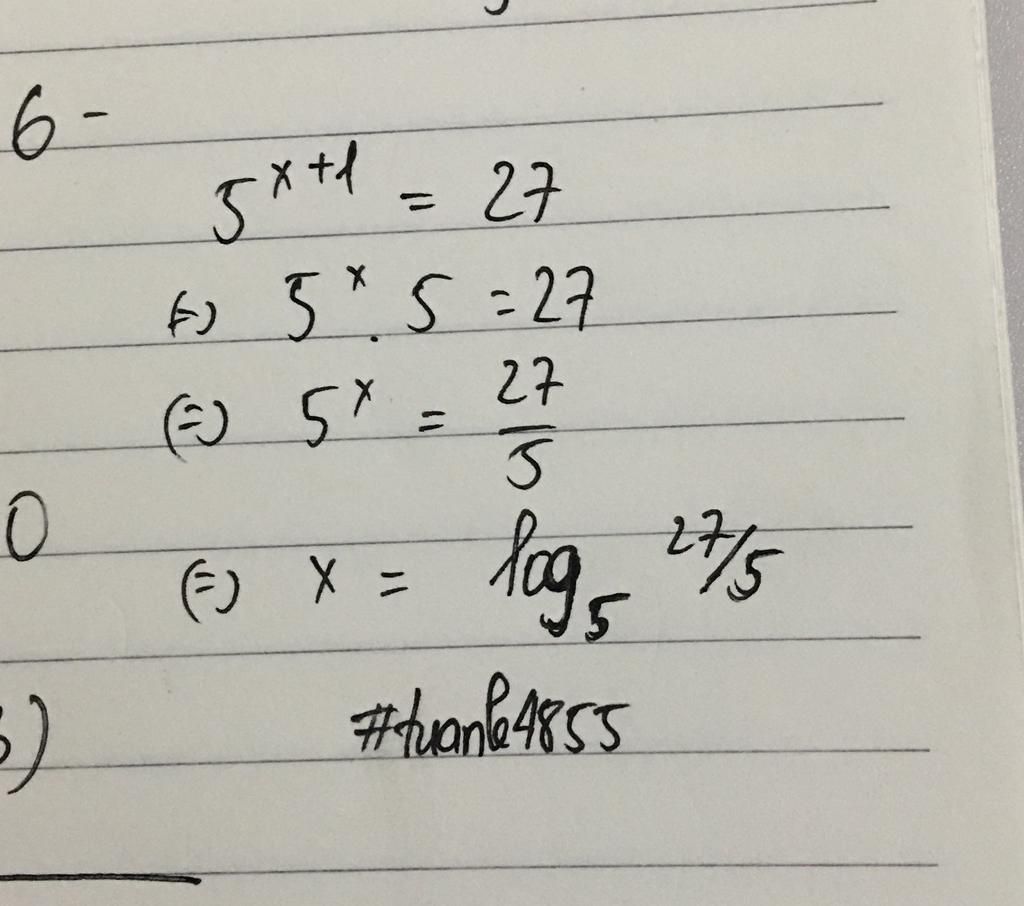 6-
5^{x+1} = 27
(=) 5^x . 5 = 27
(=) 5^x = 27/5
0
(=) x = log_5 27/5
)
#tuanle4855